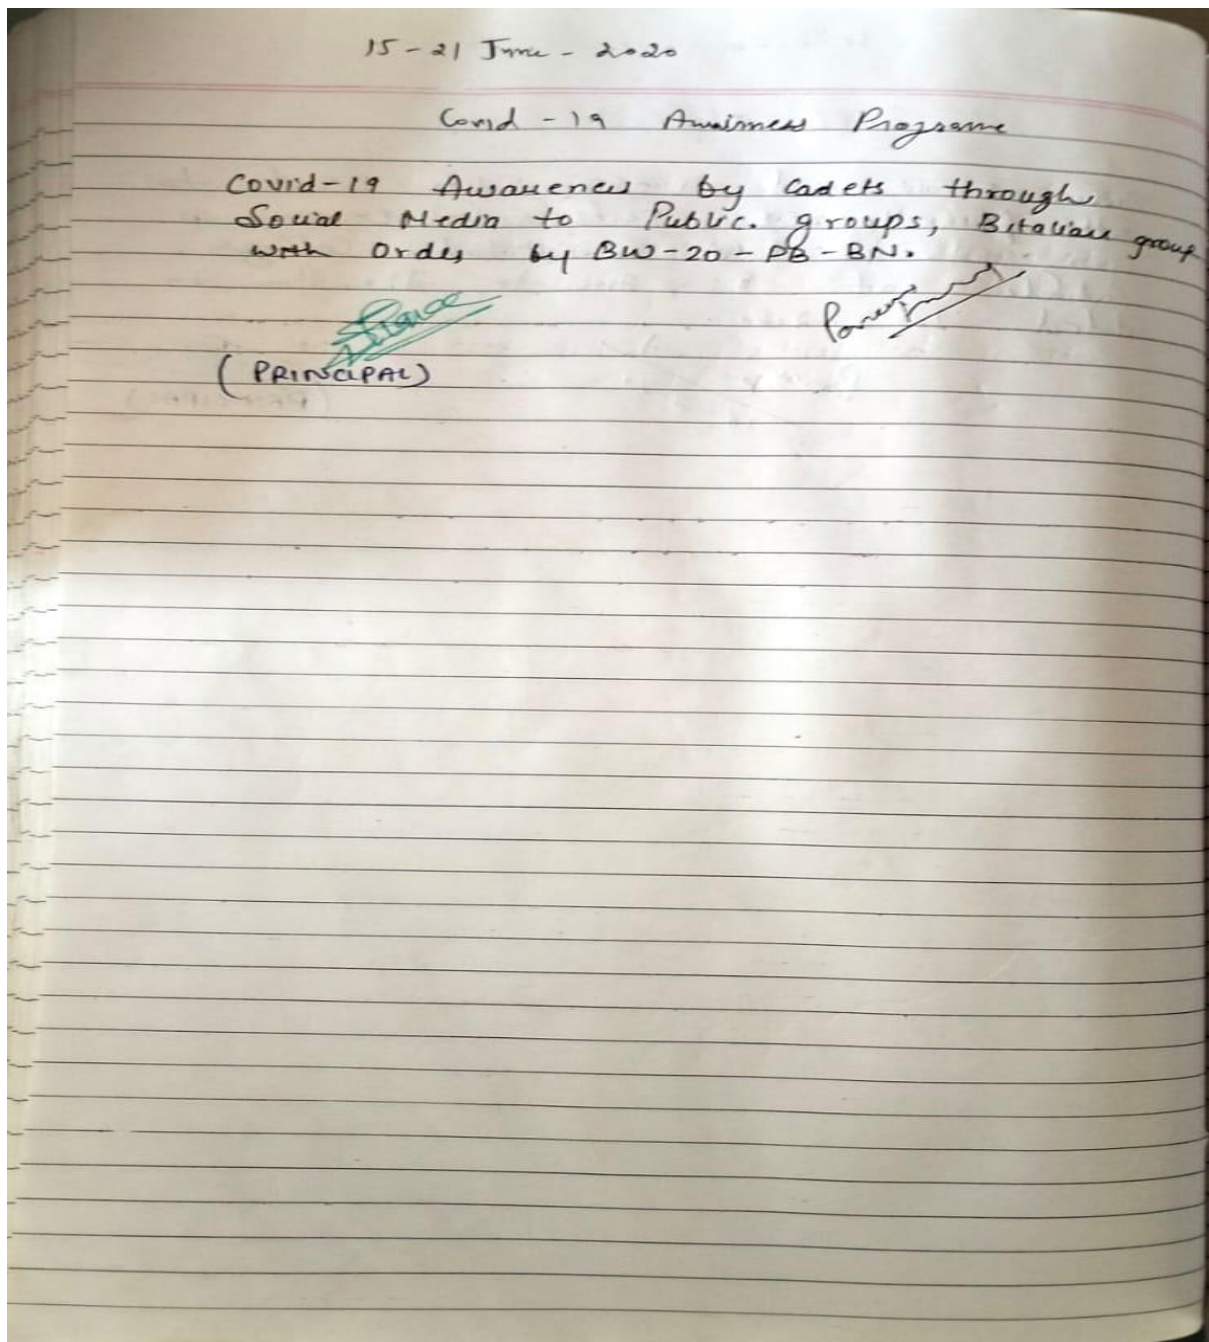 15-21 June - 2020
Covid-19 Awairness Programe
Covid-19 Awareness by Cadets through
Social Media to Public. groups, Bitalian group
with Order by BW-20-PB-BN.
(PRINCIPAL)